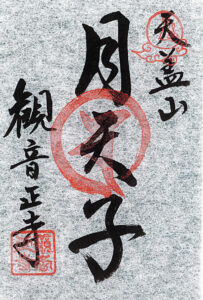 天蓋山
月天子
観音正寺